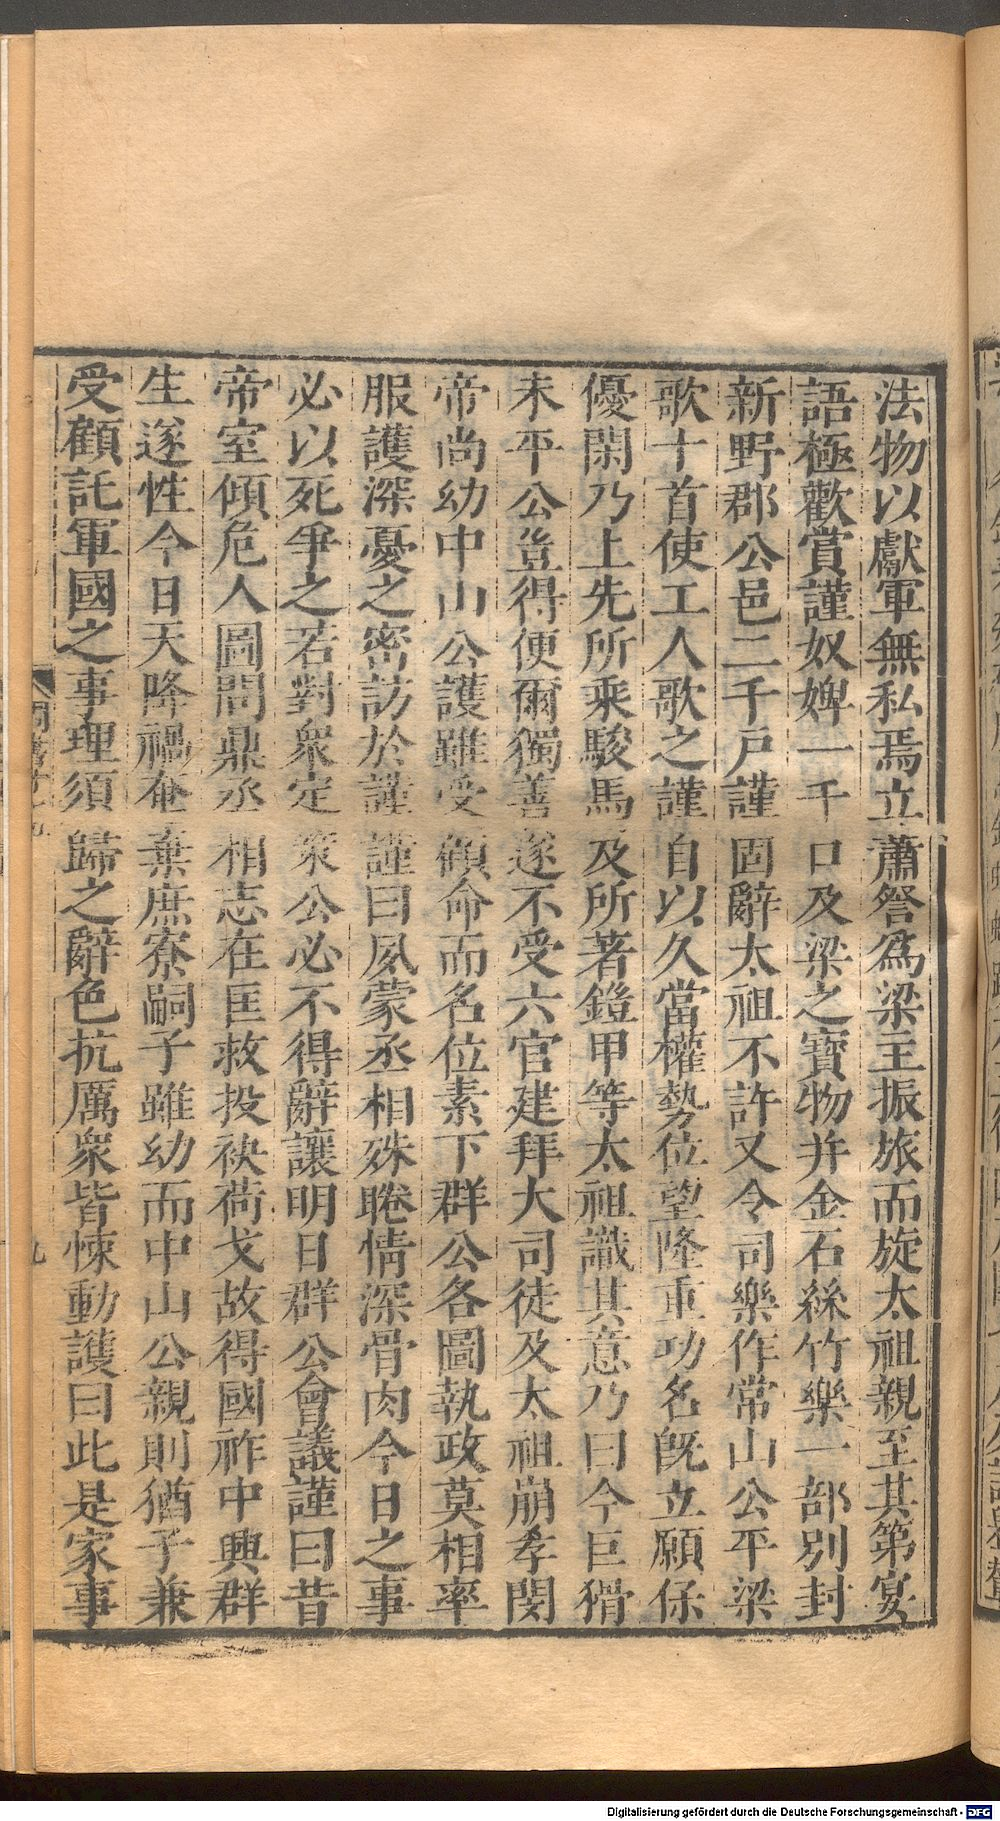 法物以獻軍無私焉立蕭詧爲梁主振旅而旋太祖親至其第宴
語極歡賞謹奴婢一千口及梁之寶物并金石絲竹樂一部別封
新野郡公邑二千戶謹固辭太祖不許又令司樂作常山公平梁
歌十首使工人歌之謹自以久當權勢位望隆重功名旣立願保
優閑乃上先所乘駿馬及所著鎧甲等太祖識其意乃曰今巨猾
未平公豈得便爾獨善遂不受六官建拜大司徒及太祖崩孝閔
帝尚幼中山公護雖受顧命而名位素下群公各圖執政莫相率
服護深憂之密訪於謹謹曰夙蒙丞相殊睠情深骨肉今日之事
必以死爭之若對衆定衆公必不得辭讓明日群公會議謹曰昔
帝室傾危人圖問鼎丞相志在匡救投袂荷戈故得國祚中興群
生遂性今日天降禍奄棄庶寮嗣子雖幼而中山公親則猶子兼
受顧託軍國之事理須歸之辭色抗厲衆皆悚動護曰此是家事
九
Digitalisierung gefördert durch die Deutsche Forschungsgemeinschaft - DFG